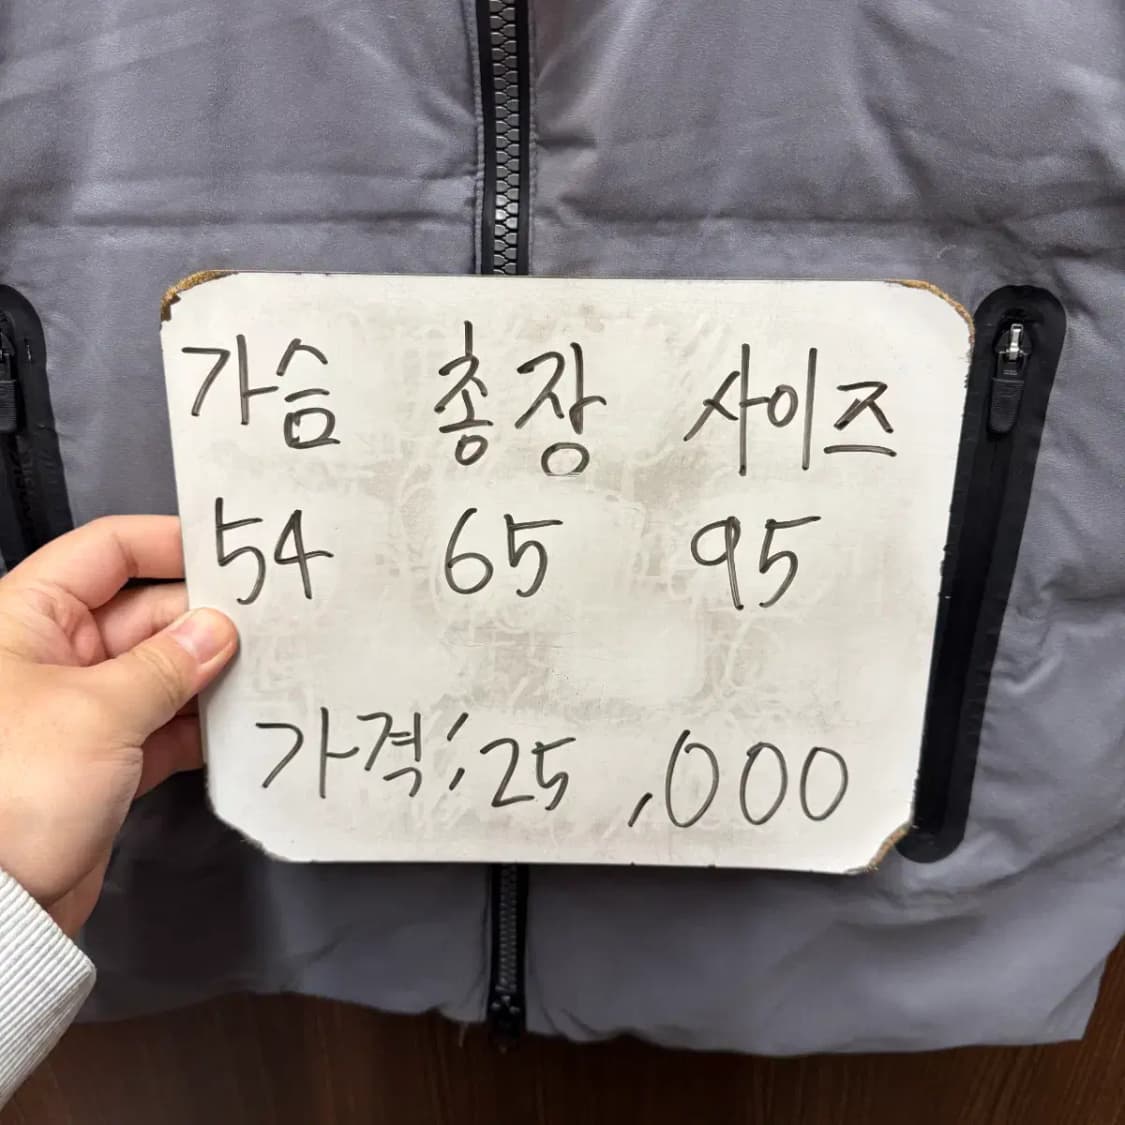 가슴 총장 사이즈
54 65 95
가격: 25,000